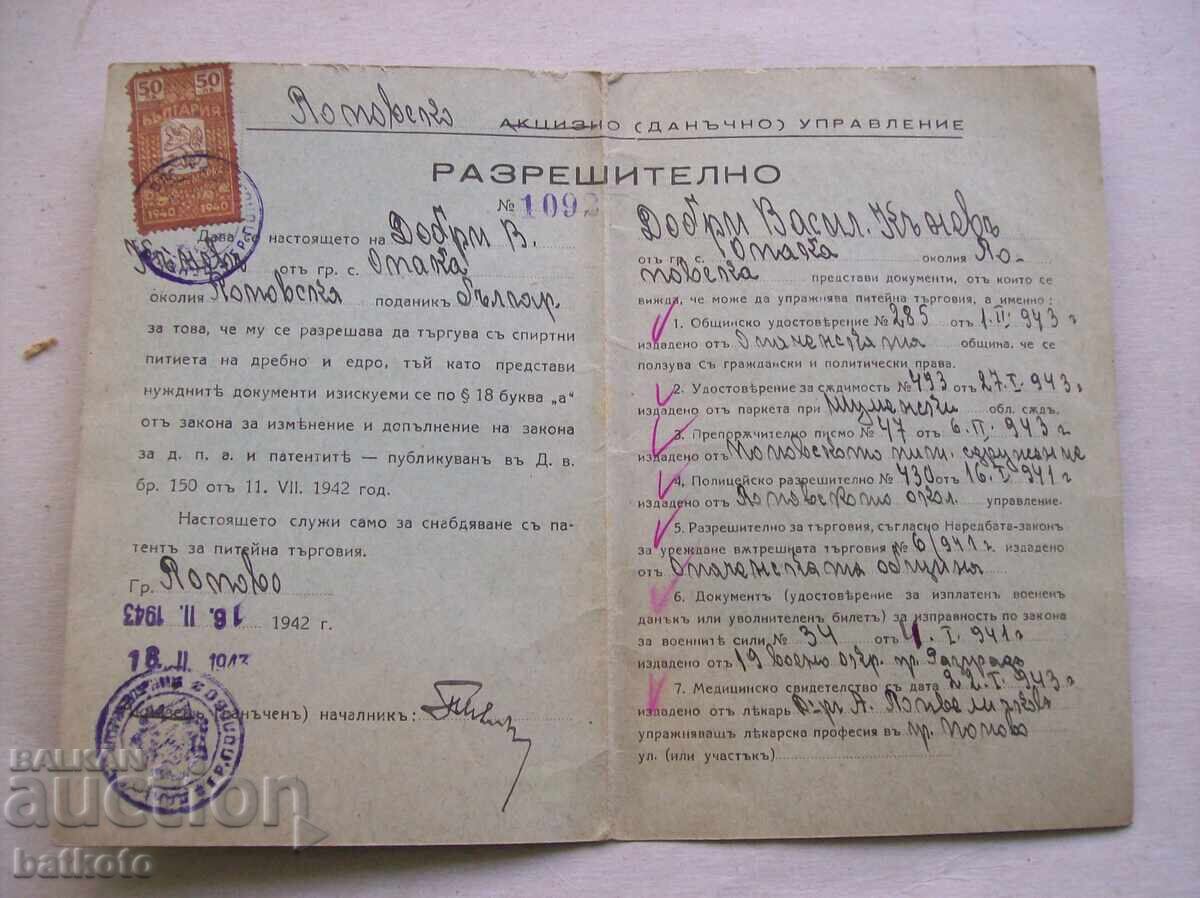 50 50
БЪЛГАРИЯ
1940 1940
Поповско АКЦИЗНО (ДАНЪЧНО) УПРАВЛЕНИЕ
РАЗРЕШИТЕЛНО
№ 1092
Дава се настоящето на Добри В.
Кѫневъ отъ гр. с. Опака
околия Поповска поданикъ българ.
за това, че му се разрешава да търгува съ спиртни
питиета на дребно и едро, тъй като представи
нужднитѣ документи изискуеми се по § 18 буква „а"
отъ закона за измѣнение и допълнение на закона
за д. п. а. и патентитѣ — публикуванъ въ Д. в.
бр. 150 отъ 11. VII. 1942 год.
Настоящето служи само за снабдяване съ па-
тентъ за питейна търговия.
Гр. Попово
16. II. 1943 1942 г.
18. II. 1943
(данъченъ) началникъ:
Добри Васил. Кѫневъ
отъ гр. с. Опака околия По-
повска представи документи, отъ които се
вижда, че може да упражнява питейна търговия, а именно:
1. Общинско удостовѣрение № 285 отъ 1. II. 943 г
издадено отъ Опаченската община, че се
ползува съ граждански и политически права.
2. Удостовѣрение за сѫдимость № 493 отъ 27. I. 943 г
издадено отъ паркета при Шуменски обл. сѫдъ.
3. Препорѫчително писмо № 47 отъ 6. II. 943 г
издадено отъ Поповското пит. сдружение
4. Полицейско разрешително № 430 отъ 16. I. 941 г
издадено отъ Поповското окол. управление.
5. Разрешително за търговия, съгласно Наредбата-законъ
за уреждане вѫтрешната търговия № 6/941 г. издадено
отъ Опаченската община
6. Документъ (удостовѣрение за изплатенъ военен
данъкъ или уволнителенъ билетъ) за изправность по закона
за военнитѣ сили № 34 отъ 4. I. 941 г
издадено отъ 19 военно окр. гр. Разградъ
7. Медицинско свидетелство съ дата 22. I. 943 г
издадено отъ лѣкарь Д-ръ А.
упражняващъ лѣкарска професия въ гр. Попово
ул. (или участъкъ)
BALKAN
auction
batkoto